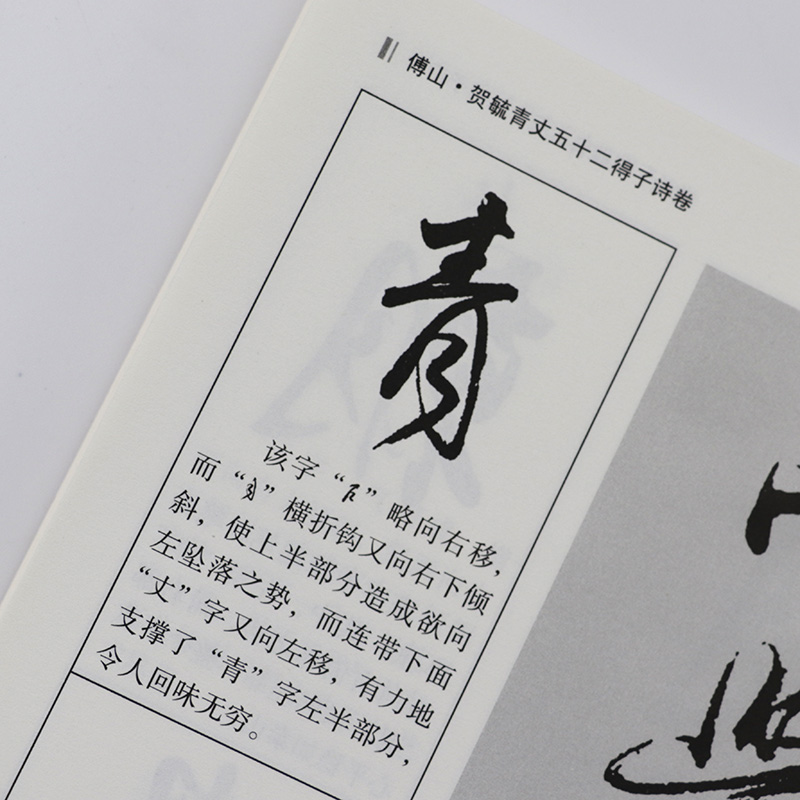 傅山·贺毓青丈五十二得子诗卷
青
该字“”略向右移，
而“”横折钩又向右下倾
斜，使上半部分造成欲向
左坠落之势，而连带下面
“丈”字又向左移，有力地
支撑了“青”字左半部分，
令人回味无穷。